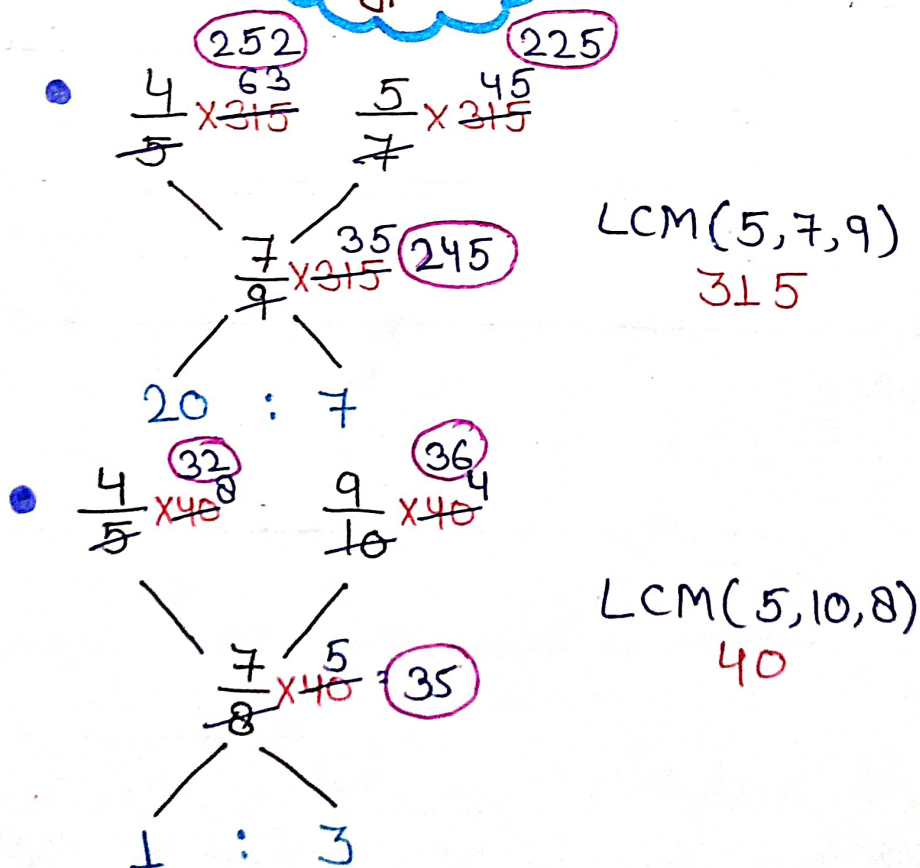 252 225
4/5 × 315 63 5/7 × 315 45
7/9 × 315 35 245
LCM(5,7,9)
315
20 : 7
32 36
4/5 × 40 8 9/10 × 40 4
7/8 × 40 5 = 35
LCM(5,10,8)
40
1 : 3